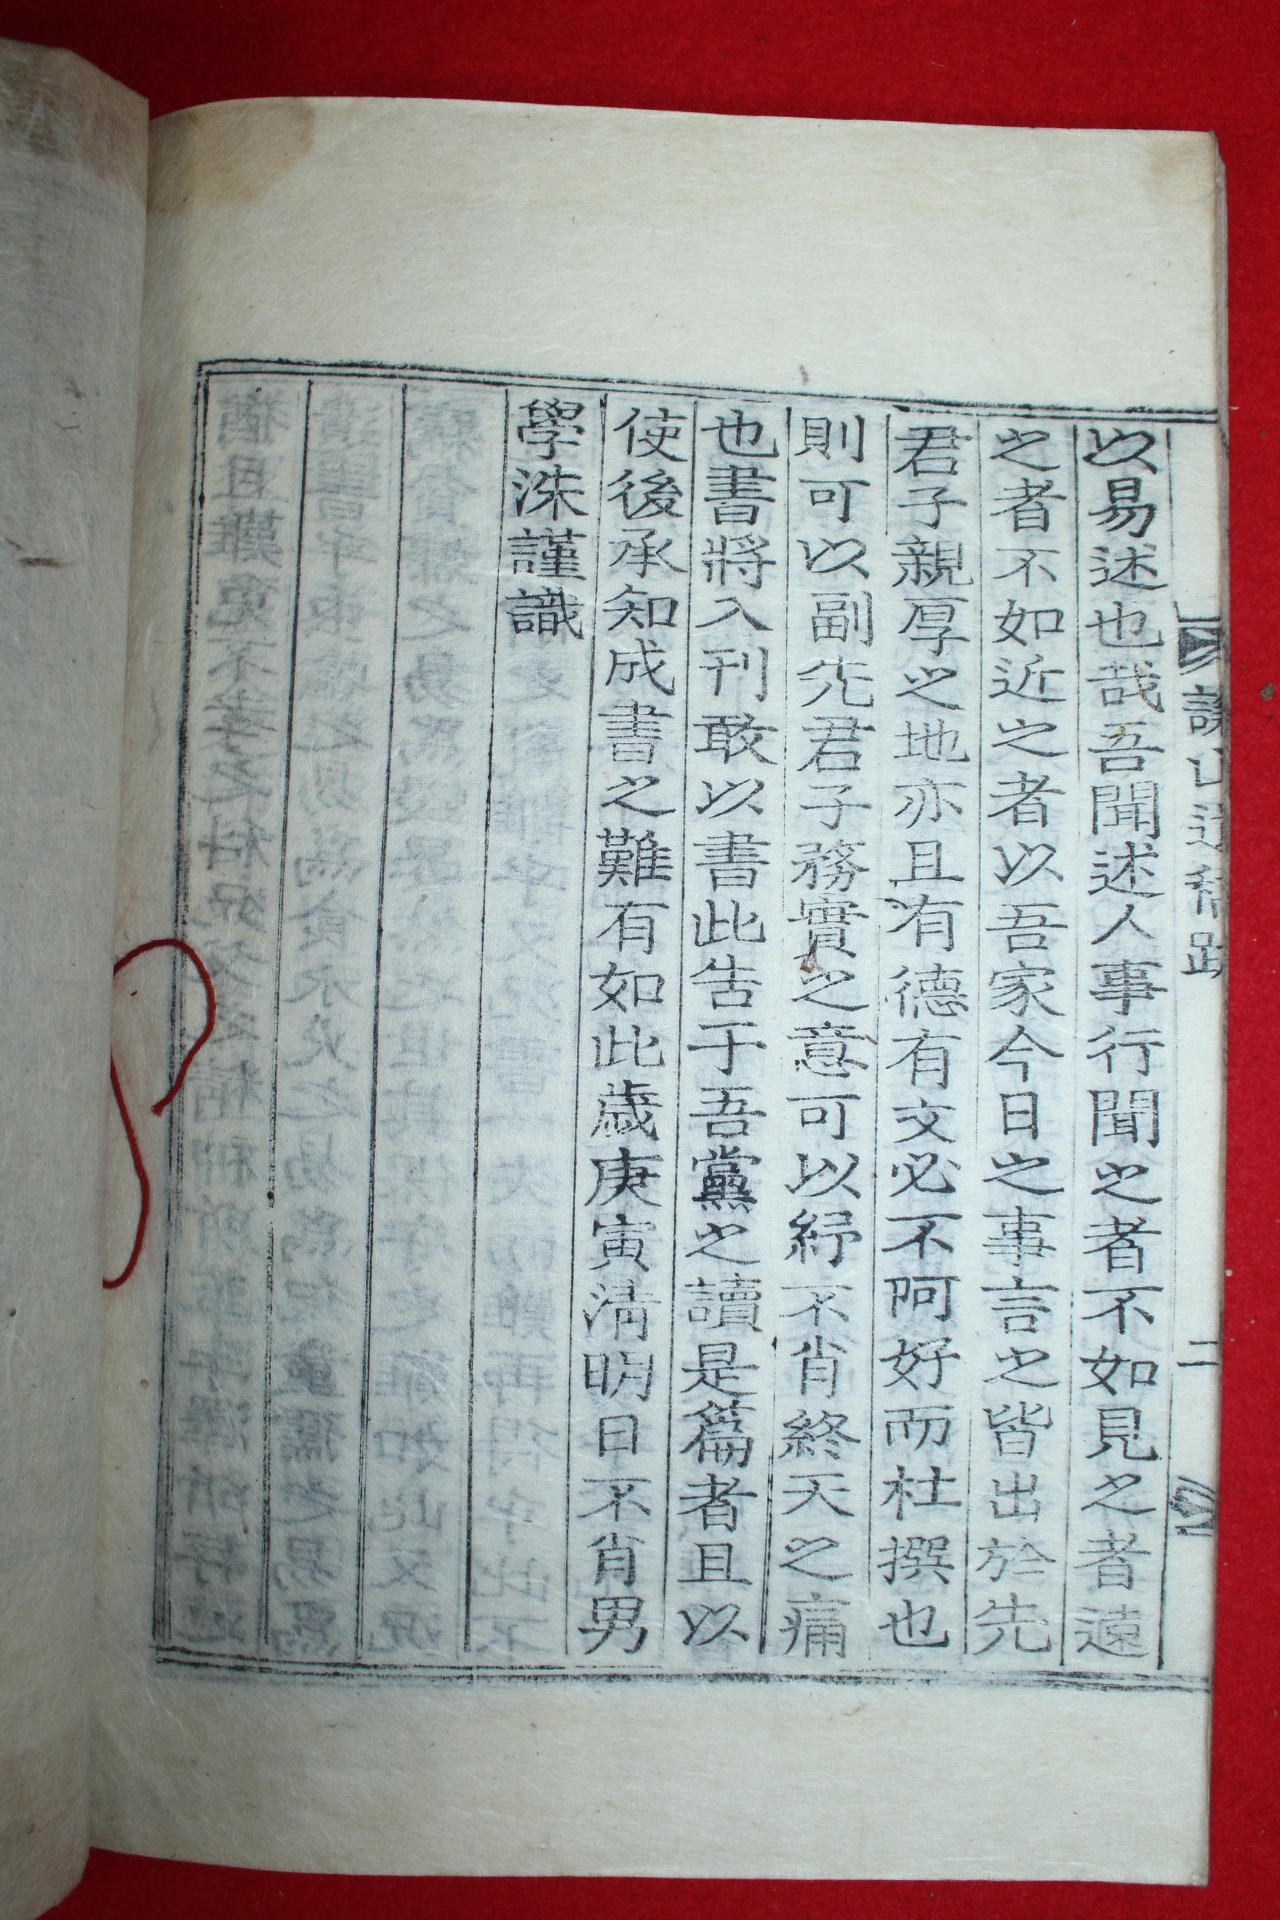 以易述也哉吾聞述人事行聞之者不如見之者遠
之者不如近之者以吾家今日之事言之皆出於先
君子親厚之地亦且有德有文必不阿好而杜撰也
則可以副先君子務實之意可以紓不肖終天之痛
也書將入刊敢以書此告于吾黨之讀是篇者且以
使後承知成書之難有如此歲庚寅淸明日不肖男
學洙謹識
山遺稿跋
二